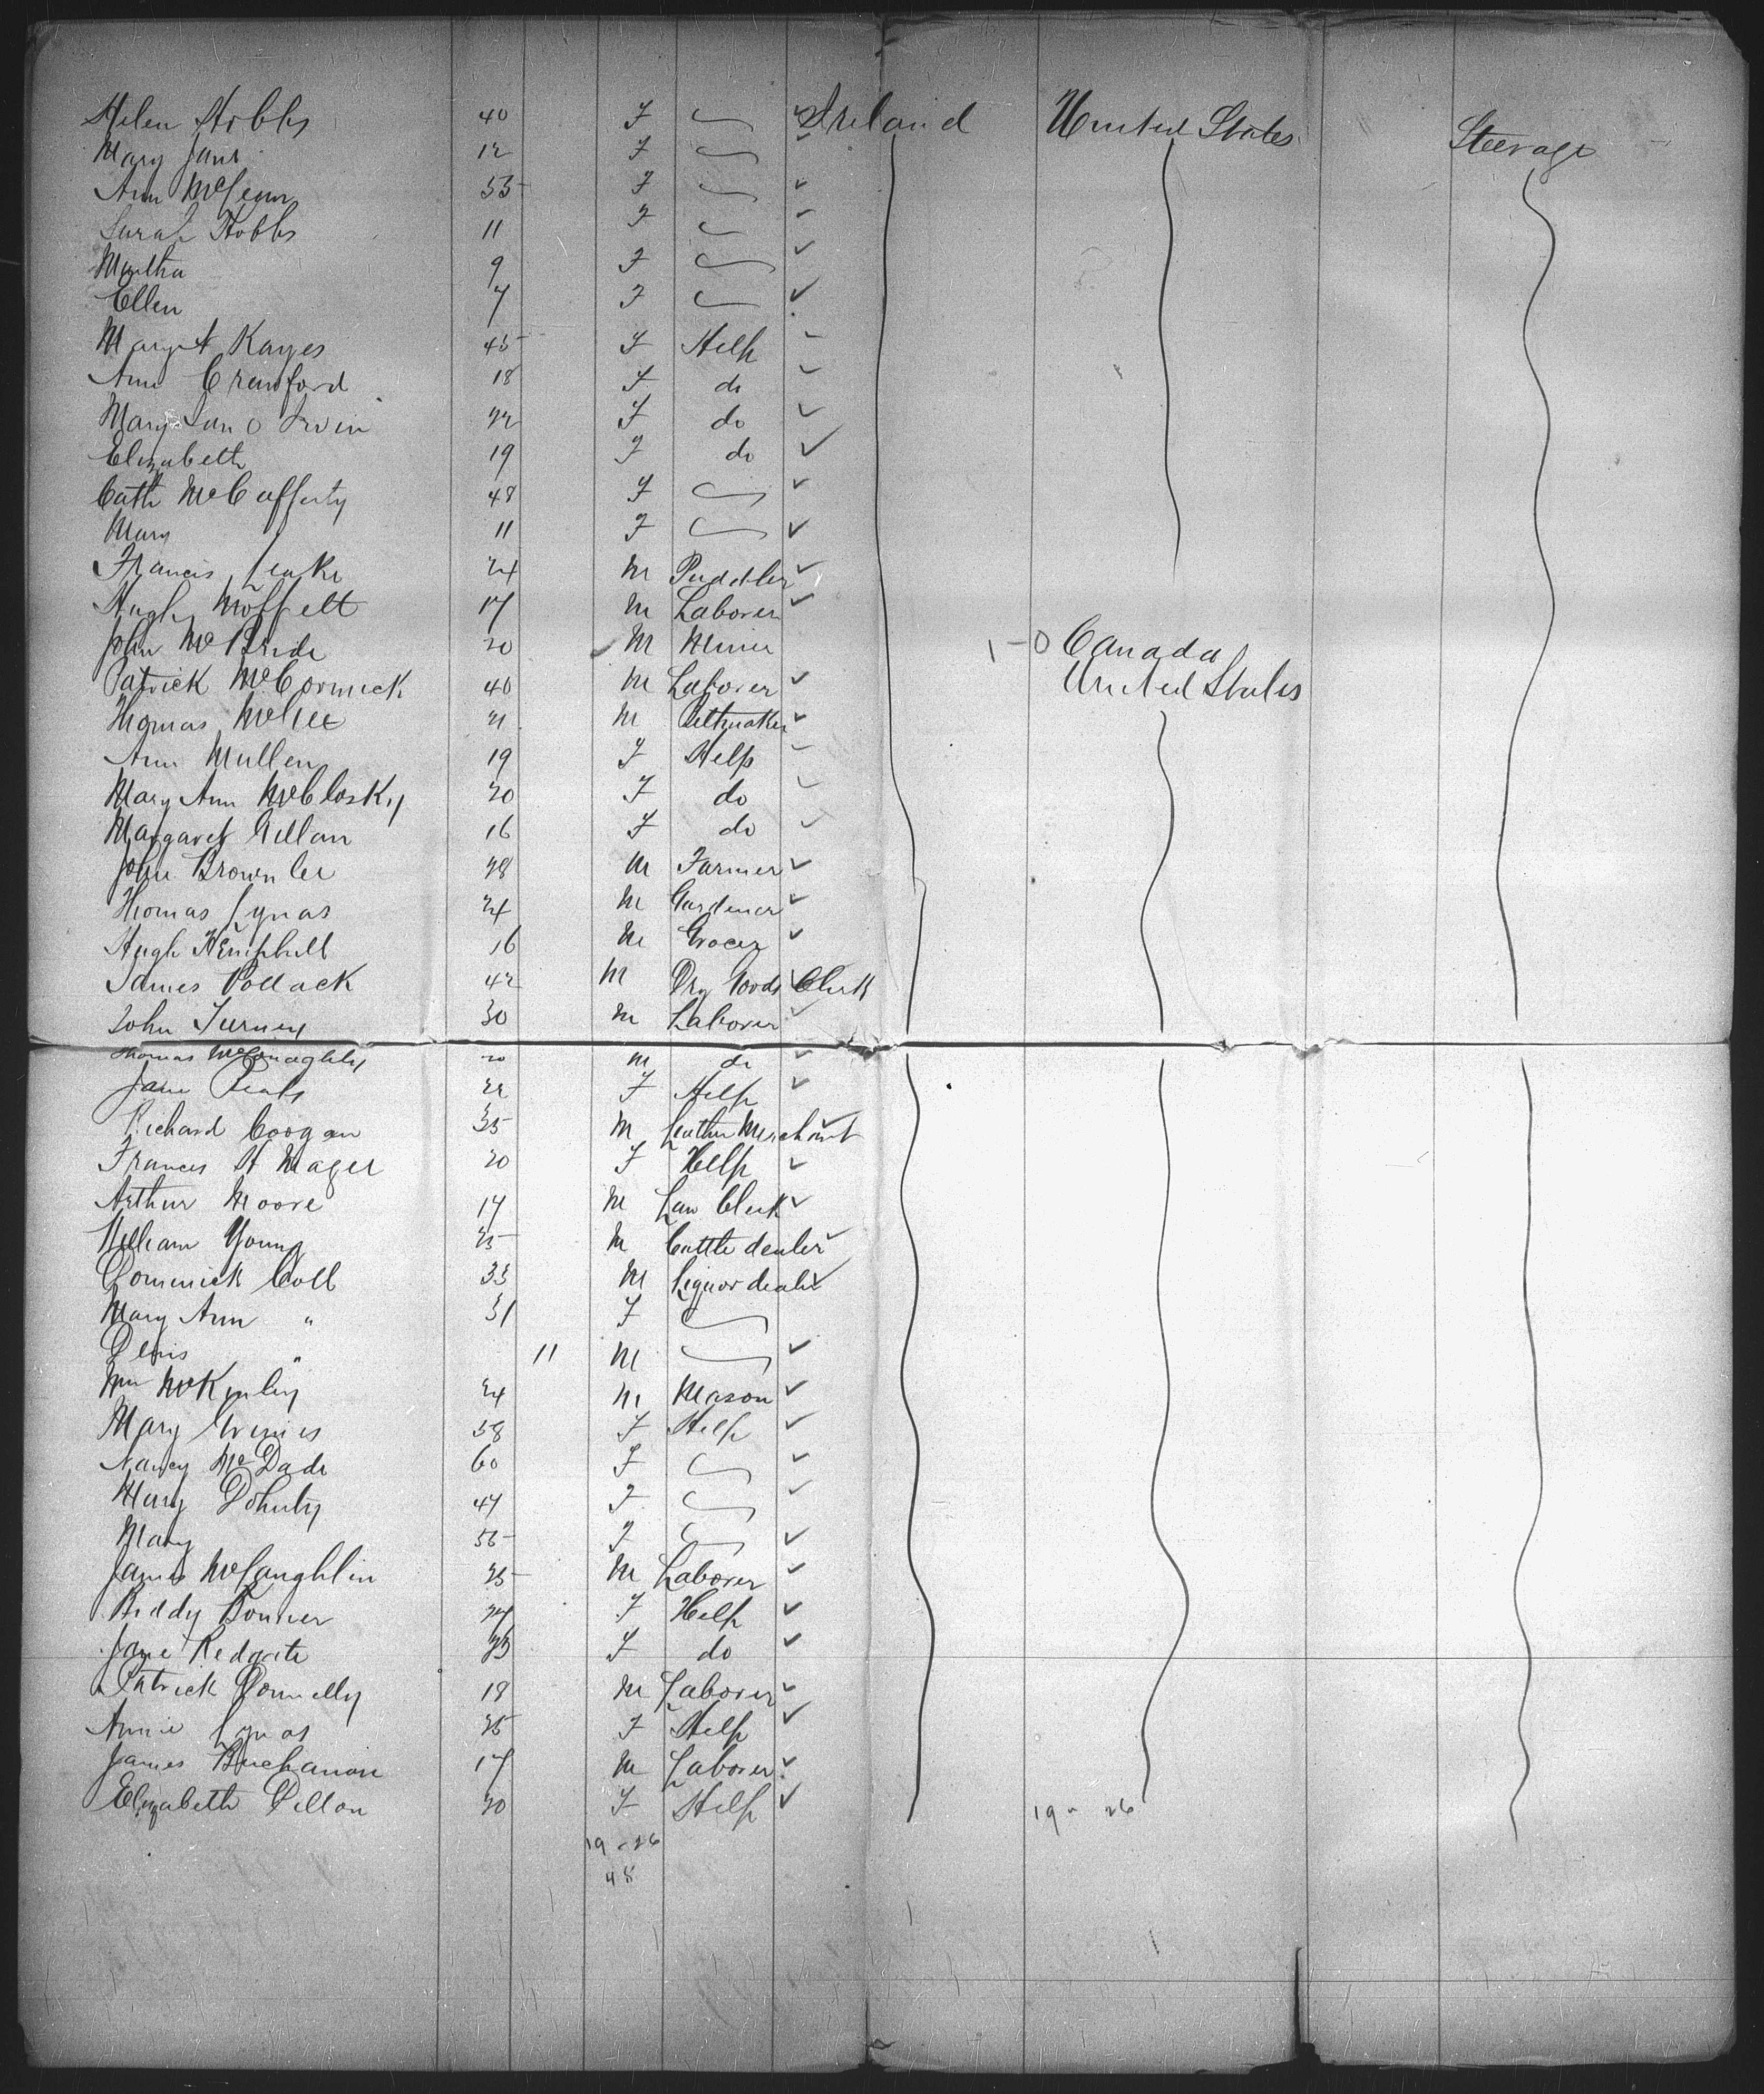 Helen Hobbs 40 F Ireland United States Steerage
Mary Jane 12 F
Ann 55 F
Sarah Hobbs 11 F
Martha 9 F
Ellen 7 F
Margt Kayes 45 F Help
Ann Crawford 18 F do
Mary Jane Irvin 22 F do
Elizabeth 19 F do
Cath McCafferty 48 F
Mary 11 F
Francis Leake 24 M Puddler
Hugh Moffett 17 M Laborer
John McBride 20 M Miner 1-0 Canada
Patrick McCormick 40 M Laborer United States
Thomas McKee 21 M
Ann Mullen 19 F Help
Mary Ann McClosky 20 F do
Margaret Gillan 16 F do
John Brownlee 28 M Farmer
Thomas Lynas 24 M Gardener
Hugh Hemphill 16 M Grocer
James Pollack 42 M Dry Goods Clerk
John Turney 30 M Laborer
Thomas 20 M do
Jane 22 F Help
Richard Coogan 35 M Leather Merchant
Frances H 20 F Help
Arthur Moore 17 M Law Clerk
William Young 25 M Cattle dealer
Dominick Coll 33 M Liquor dealer
Mary Ann " 31 F
Denis " 11 M
Wm McKinley 24 M Mason
Mary 38 F Help
Nancy McDade 60 F
Mary Doherty 47 F
Mary F
James McLaughlin 25 M Laborer
Biddy Bonner 24 F Help
Jane Redgate F do
Patrick Donnelly 18 M Laborer
Annie Lynas 25 F Help
James Buchanan 17 M Laborer
Elizabeth Dillon 20 F Help 19 - 26
19 - 26
48